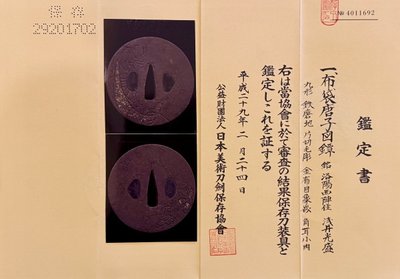 保存
29201702
№ 4011692
鑑定書
一、布袋唐子図鐔 銘 洛陽西陣住 浅井光盛
丸形 鉄磨地 片切毛彫 金有目象嵌 角耳小肉
右は當協會に於て審査の結果保存刀装具と
鑑定しこれを証する
平成二十九年 二月二十四日
公益財團法人 日本美術刀劍保存協會